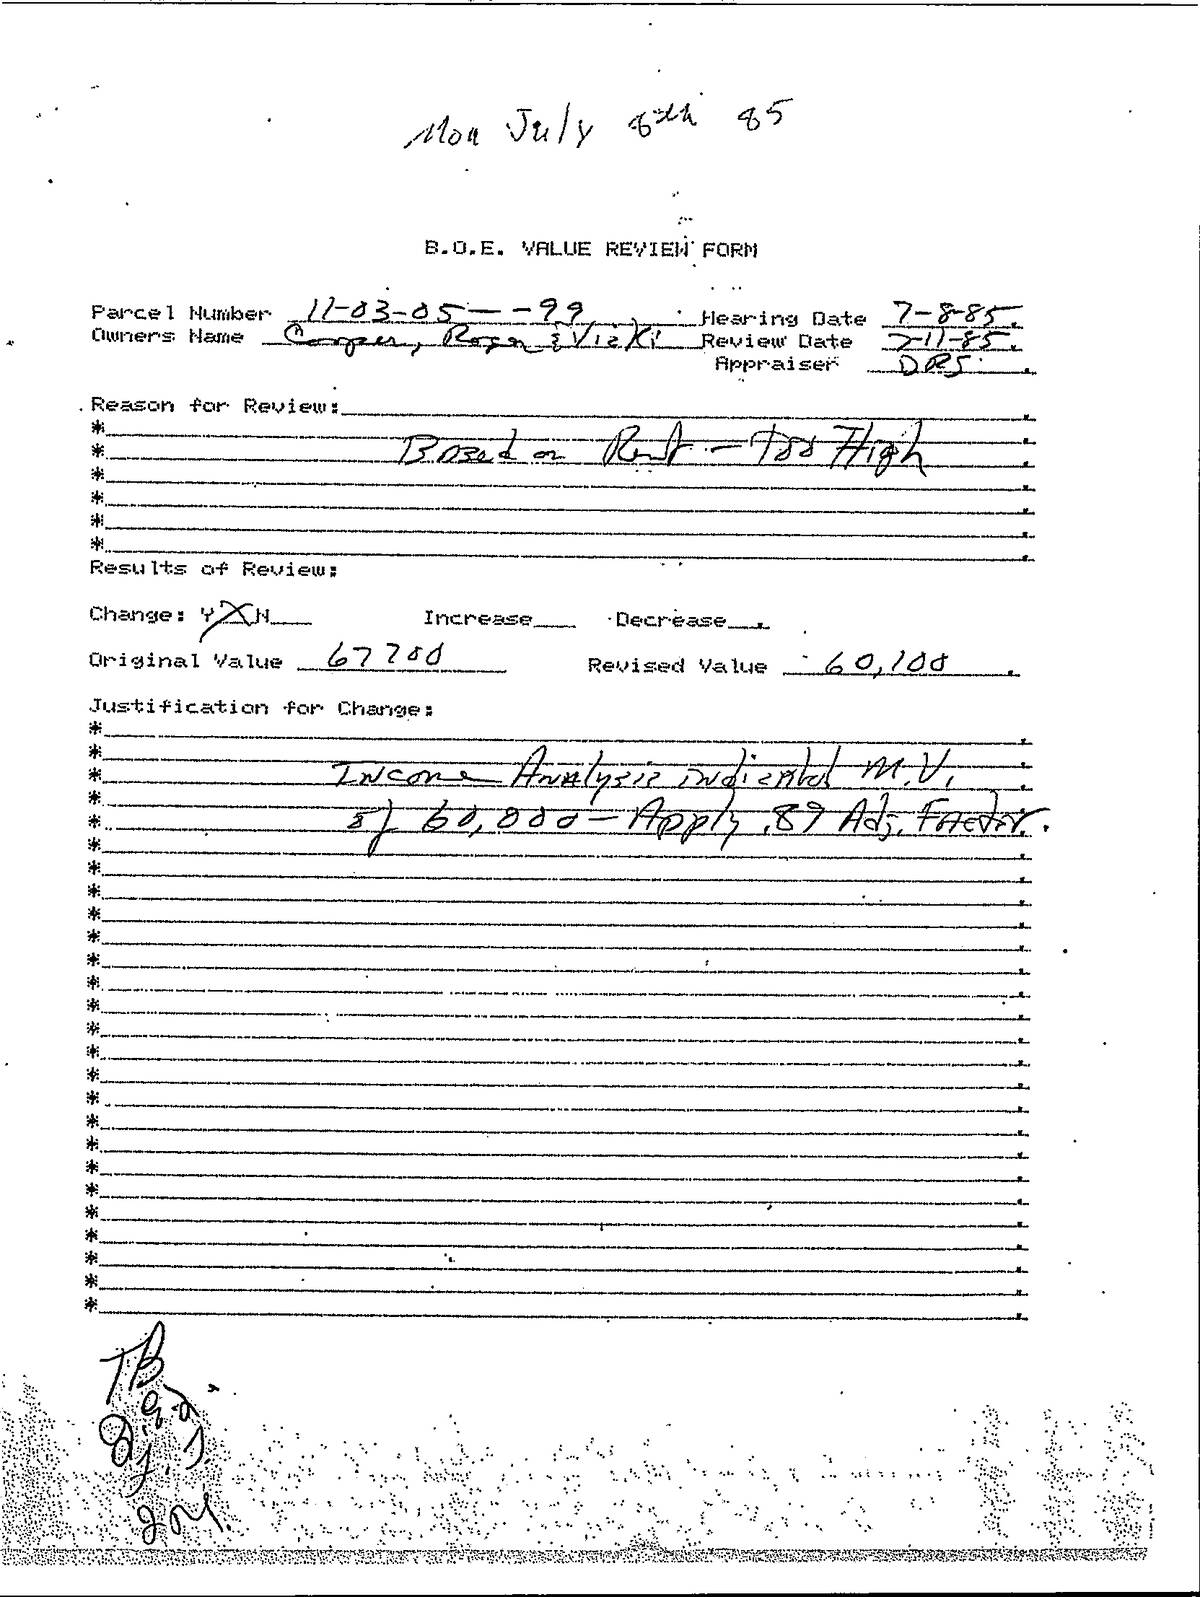 Mon July 8th 85
B.O.E. VALUE REVIEW FORM
Parcel Number 11-03-05- -99 Hearing Date 7-8-85.
Owners Name Cooper, Roger & Vicki Review Date 7-11-85.
Appraiser DRS.
Reason for Review:
*
* Based on Rent - Too High
*
*
*
*
Results of Review:
Change: Y X N Increase Decrease .
Original Value 67200 Revised Value 60,100 .
Justification for Change:
*
*
* Income Analysis indicated M.V.
*
* of 60,000 - Apply .89 Adj. Factor.
*
*
*
*
*
*
*
*
*
*
*
*
*
*
*
*
*
*
*
*
*
TB